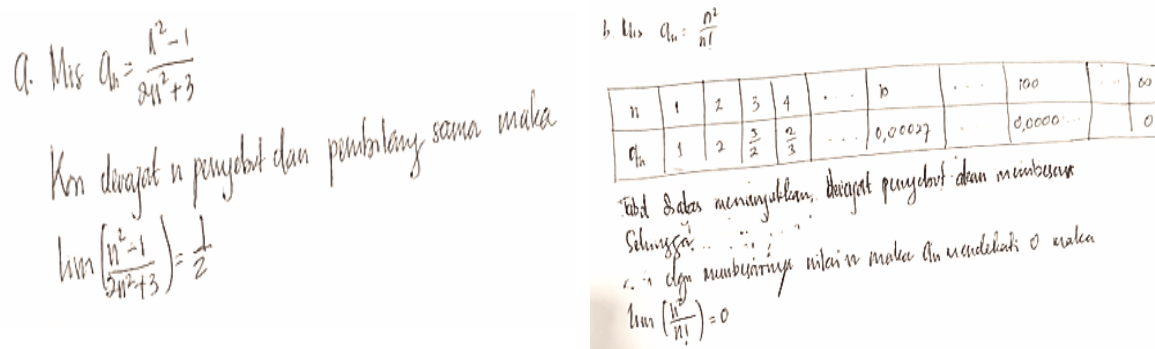 a. Mis an = n²-1 / 2n²+3
Kn derajat n penyebut dan pembilang sama maka
lim (n²-1 / 2n²+3) = 1/2
b. Mis an = n² / n!
n 1 2 3 4 .... 10 .... 100 ... ∞
an 1 2 3/2 2/3 .... 0,00027 ... 0,0000... 0
Tabel diatas menunjukkan, derajat penyebut akan membesar
Sehingga...
dgn membesarnya nilai n maka an mendekati 0 maka
lim (n² / n!) = 0